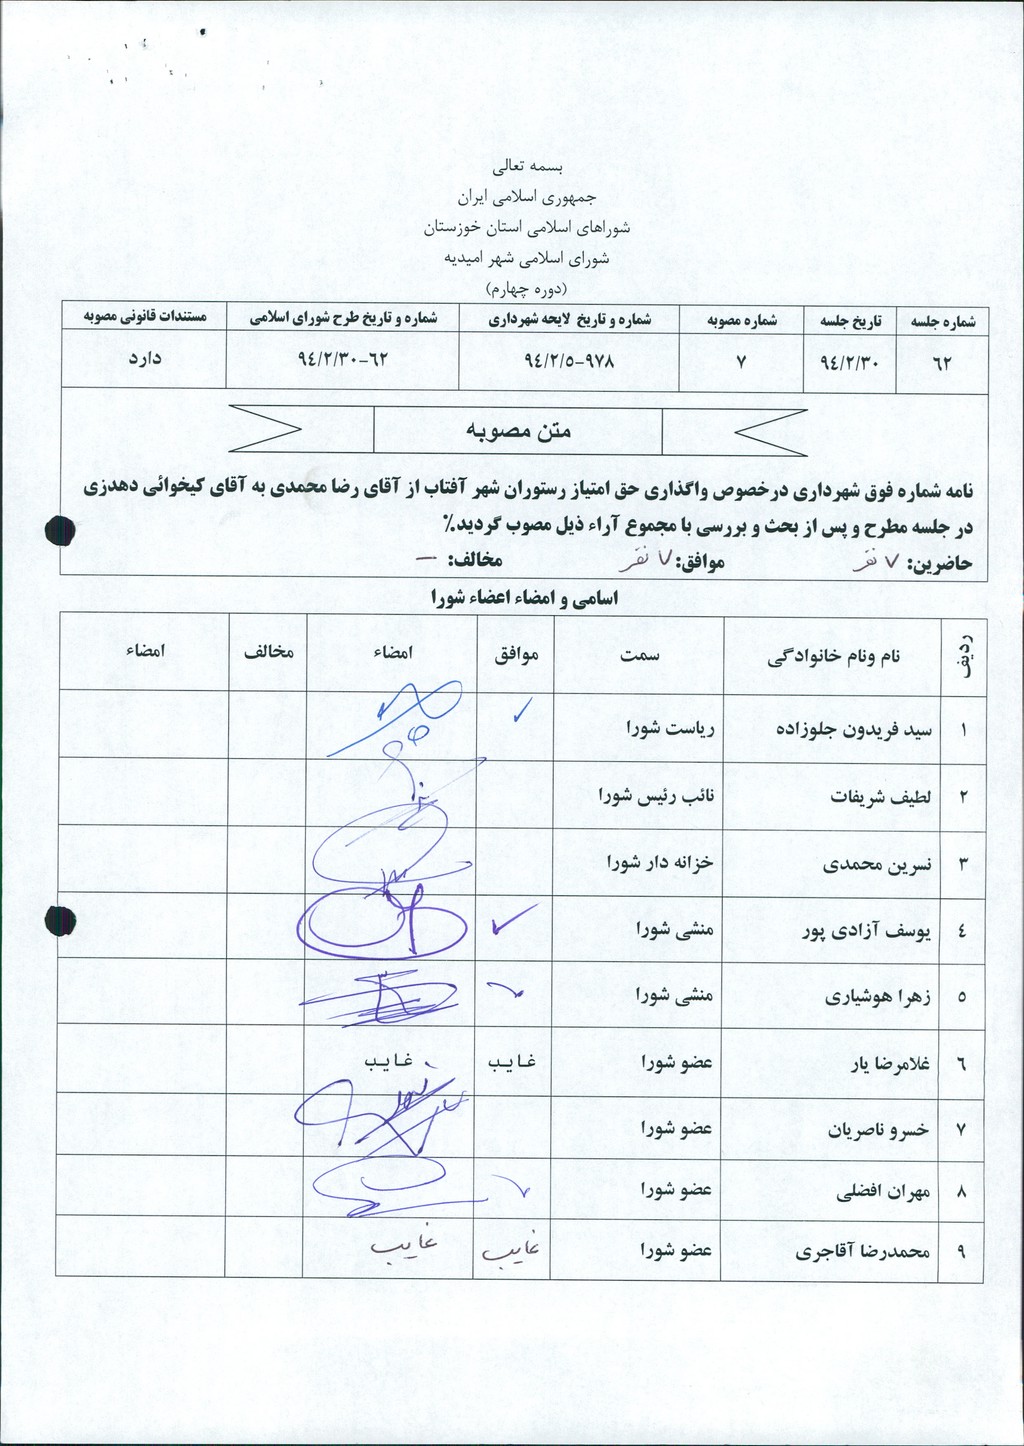 بسمه تعالی
جمهوری اسلامی ایران
شوراهای اسلامی استان خوزستان
شورای اسلامی شهر امیدیه
(دوره چهارم)
شماره جلسه تاریخ جلسه شماره مصوبه شماره و تاریخ لایحه شهرداری شماره و تاریخ طرح شورای اسلامی مستندات قانونی مصوبه
٦٢ ٩٤/٢/٣٠ ٧ ٩٤/٢/٥-٩٧٨ ٩٤/٢/٣٠-٦٢ دارد
متن مصوبه
نامه شماره فوق شهرداری درخصوص واگذاری حق امتیاز رستوران شهر آفتاب از آقای رضا محمدی به آقای کیخوائی دهدزی
در جلسه مطرح و پس از بحث و بررسی با مجموع آراء ذیل مصوب گردید.٪
حاضرین: ٧ نفر موافق: ٧ نفر مخالف: —
اسامی و امضاء اعضاء شورا
ردیف نام ونام خانوادگی سمت موافق امضاء مخالف امضاء
١ سید فریدون جلوزاده ریاست شورا ✓
٢ لطیف شریفات نائب رئیس شورا
٣ نسرین محمدی خزانه دار شورا
٤ یوسف آزادی پور منشی شورا ✓
٥ زهرا هوشیاری منشی شورا
٦ غلامرضا یار عضو شورا غایب غایب
٧ خسرو ناصریان عضو شورا
٨ مهران افضلی عضو شورا
٩ محمدرضا آقاجری عضو شورا غایب غایب